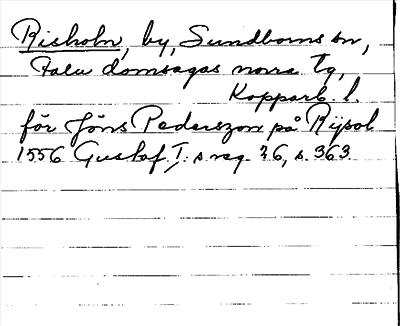 Risholn, by, Sundborns sn,
Falu domsagas norra tg,
Kopparb. l.
för Jöns Pederszon på Rijsol
1556 Gustaf I:s reg. 26, s. 363.